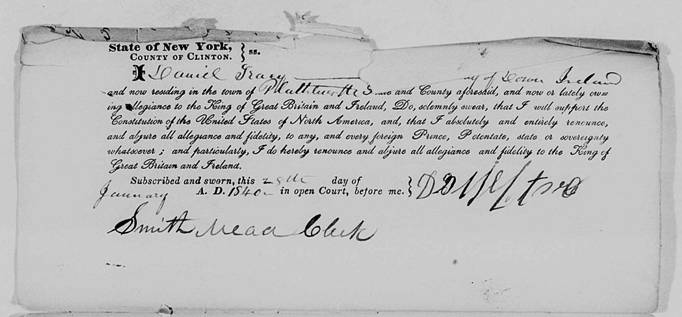 State of New York,
COUNTY OF CLINTON. } ss.
I Daniel Tracy of Down Ireland
and now residing in the town of and County aforesaid, and now or lately ow-
ing allegiance to the King of Great Britain and Ireland, Do, solemnly swear, that I will support the
Constitution of the United States of North America, and, that I absolutely and entirely renounce,
and abjure all allegiance and fidelity, to any, and every foreign Prince, Potentate, state or sovereignty
whatsoever; and particularly, I do hereby renounce and abjure all allegiance and fidelity to the King of
Great Britain and Ireland.
Subscribed and sworn, this 28th day of
January A. D. 1840 in open Court, before me. }
Smith Mead Clerk